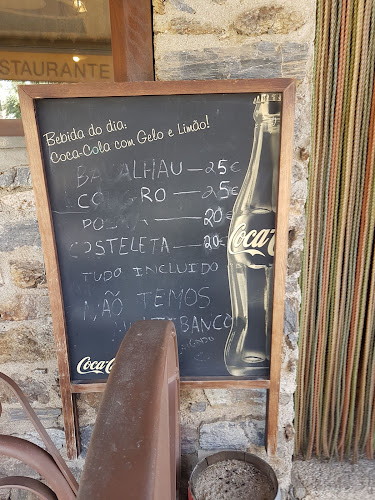 STAURANTE
Bebida do dia:
Coca-Cola com Gelo e Limão!
BACALHAU — 25€
CO RO — 25€
PO — 20€
COSTELETA — 20€
TUDO INCLUIDO
NÃO TEMOS
MULTIBANCO
Coca-Cola
Coca-C